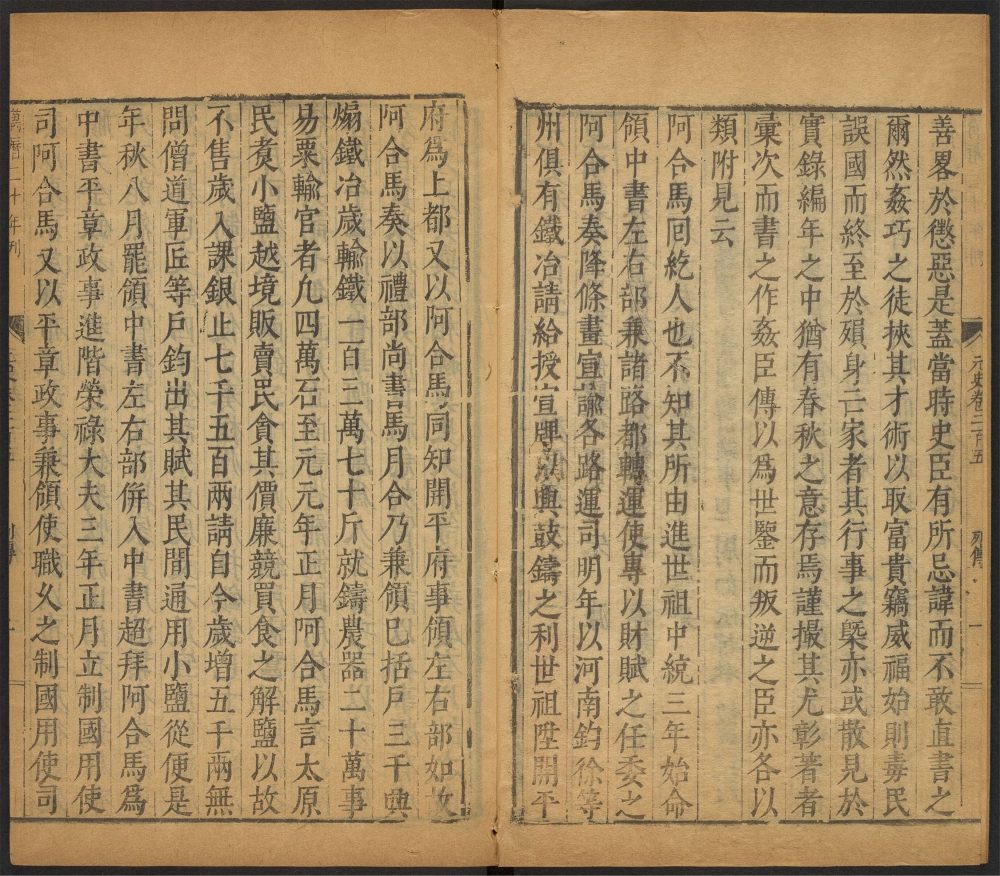 善畧於懲惡是蓋當時史臣有所忌諱而不敢直書之
爾然姦巧之徒挾其才術以取富貴竊威福始則毒民
誤國而終至於殞身亡家者其行事之槩亦或散見於
實錄編年之中猶有春秋之意存焉謹撮其尤彰著者
彙次而書之作姦臣傳以爲世鑒而叛逆之臣亦各以
類附見云
阿合馬回紇人也不知其所由進世祖中統三年始命
領中書左右部兼諸路都轉運使專以財賦之任委之
阿合馬奏降條畫宣諭各路運司明年以河南鈞徐等
州俱有鐵冶請給授宣牌以興鼓鑄之利世祖陞開平
府爲上都又以阿合馬同知開平府事領左右部如故
阿合馬奏以禮部尚書馬月合乃兼領已括戶三千興
煽鐵冶歲輸鐵一百三萬七十斤就鑄農器二十萬事
易粟輸官者凡四萬石至元元年正月阿合馬言太原
民煑小鹽越境販賣民貪其價廉競買食之解鹽以故
不售歲入課銀止七千五百兩請自今歲增五千兩無
問僧道軍匠等戶鈞出其賦其民間通用小鹽從便是
年秋八月罷領中書左右部併入中書超拜阿合馬爲
中書平章政事進階榮祿大夫三年正月立制國用使
司阿合馬又以平章政事兼領使職乆之制國用使司
元史卷二百五
列傳
一
萬曆二十年刊